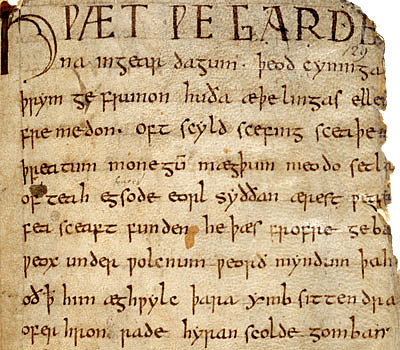 HǷÆT ǷE GARDE
na ingear dagum. þeod cyninga
þrym ge frunon huða æþelingas elle
fre medon. oft scyld scefing sceaþe
þreatum monegū mægþum meodo setla
of teah egsode eorl syððan ærest ƿear
fea sceaft funden he þæs frofre geba
ƿeox under ƿolcnum ƿeorð myndum þah
oðꝥ him æghƿylc þara ymb sittendra
ofer hron rade hyran scolde gomban